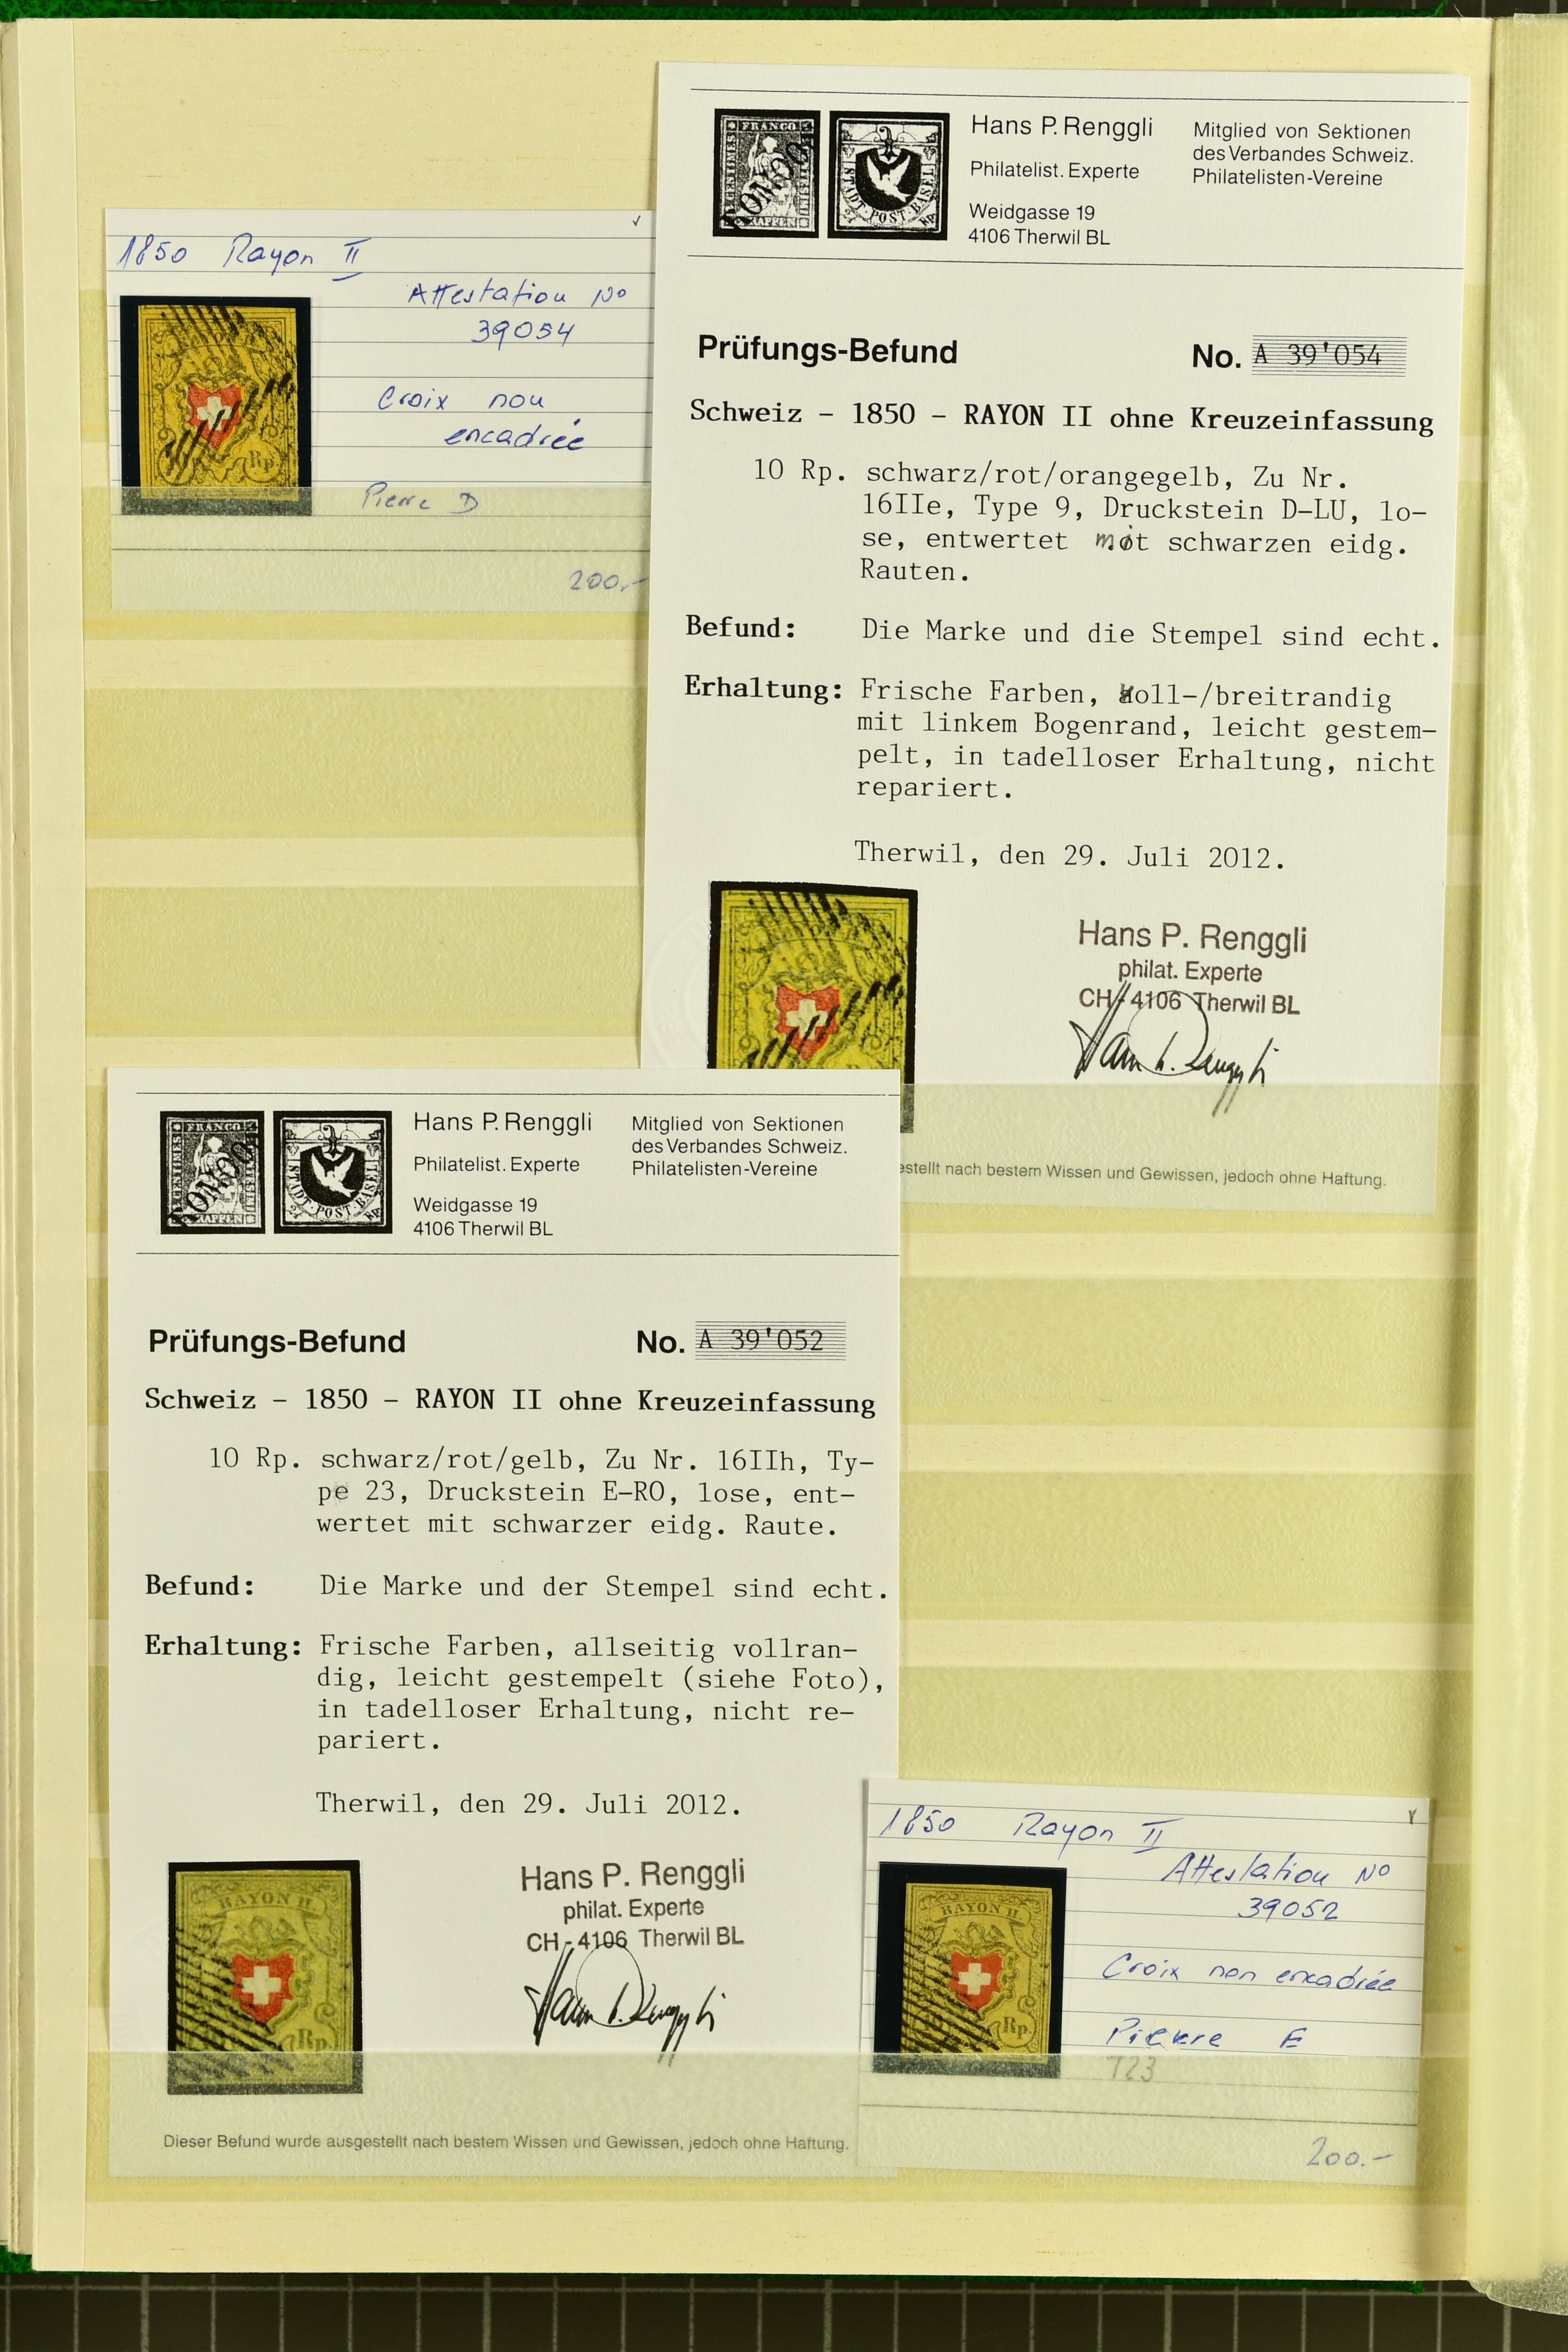 1850 Rayon II
Attestation No
39054
Croix non
encadrée
Pierre D
200.-
Rp.
FRANCO
STADT-POST-BASEL
Hans P. Renggli
Philatelist. Experte
Weidgasse 19
4106 Therwil BL
Mitglied von Sektionen
des Verbandes Schweiz.
Philatelisten-Vereine
Prüfungs-Befund No. A 39'054
Schweiz - 1850 - RAYON II ohne Kreuzeinfassung
10 Rp. schwarz/rot/orangegelb, Zu Nr.
16IIe, Type 9, Druckstein D-LU, lo-
se, entwertet mit schwarzen eidg.
Rauten.
Befund: Die Marke und die Stempel sind echt.
Erhaltung: Frische Farben, voll-/breitrandig
mit linkem Bogenrand, leicht gestem-
pelt, in tadelloser Erhaltung, nicht
repariert.
Therwil, den 29. Juli 2012.
Hans P. Renggli
philat. Experte
CH-4106 Therwil BL
stellt nach bestem Wissen und Gewissen, jedoch ohne Haftung.
FRANCO
STADT-POST-BASEL
Hans P. Renggli
Philatelist. Experte
Weidgasse 19
4106 Therwil BL
Mitglied von Sektionen
des Verbandes Schweiz.
Philatelisten-Vereine
Prüfungs-Befund No. A 39'052
Schweiz - 1850 - RAYON II ohne Kreuzeinfassung
10 Rp. schwarz/rot/gelb, Zu Nr. 16IIh, Ty-
pe 23, Druckstein E-RO, lose, ent-
wertet mit schwarzer eidg. Raute.
Befund: Die Marke und der Stempel sind echt.
Erhaltung: Frische Farben, allseitig vollran-
dig, leicht gestempelt (siehe Foto),
in tadelloser Erhaltung, nicht re-
pariert.
Therwil, den 29. Juli 2012.
RAYON II.
Rp.
Hans P. Renggli
philat. Experte
CH-4106 Therwil BL
Dieser Befund wurde ausgestellt nach bestem Wissen und Gewissen, jedoch ohne Haftung.
1850 Rayon II
Attestation No
39052
Croix non encadrée
Pierre E
T23
200.-
RAYON II.
Rp.